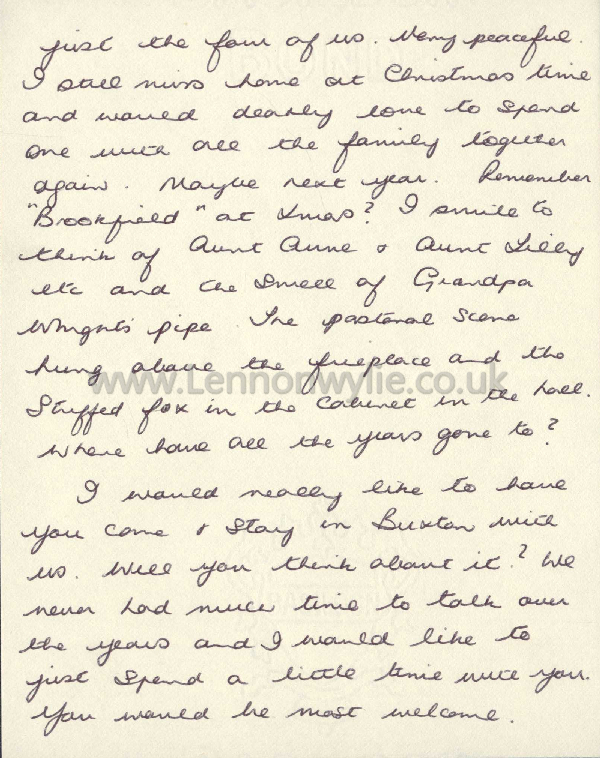 just the four of us. Very peaceful.
I still miss home at Christmas time
and would dearly love to spend
one with all the family together
again. Maybe next year. Remember
"Brookfield" at Xmas? I smile to
think of Aunt Anne & Aunt Lilly
etc and the smell of Grandpa
Wright's pipe The pastoral scene
hung above the fireplace and the
www.Lennonwylie.co.uk
Stuffed fox in the cabinet in the hall.
Where have all the years gone to?
I would really like to have
you come & stay in Buxton with
us. Will you think about it? We
never had much time to talk over
the years and I would like to
just spend a little time with you.
You would be most welcome.